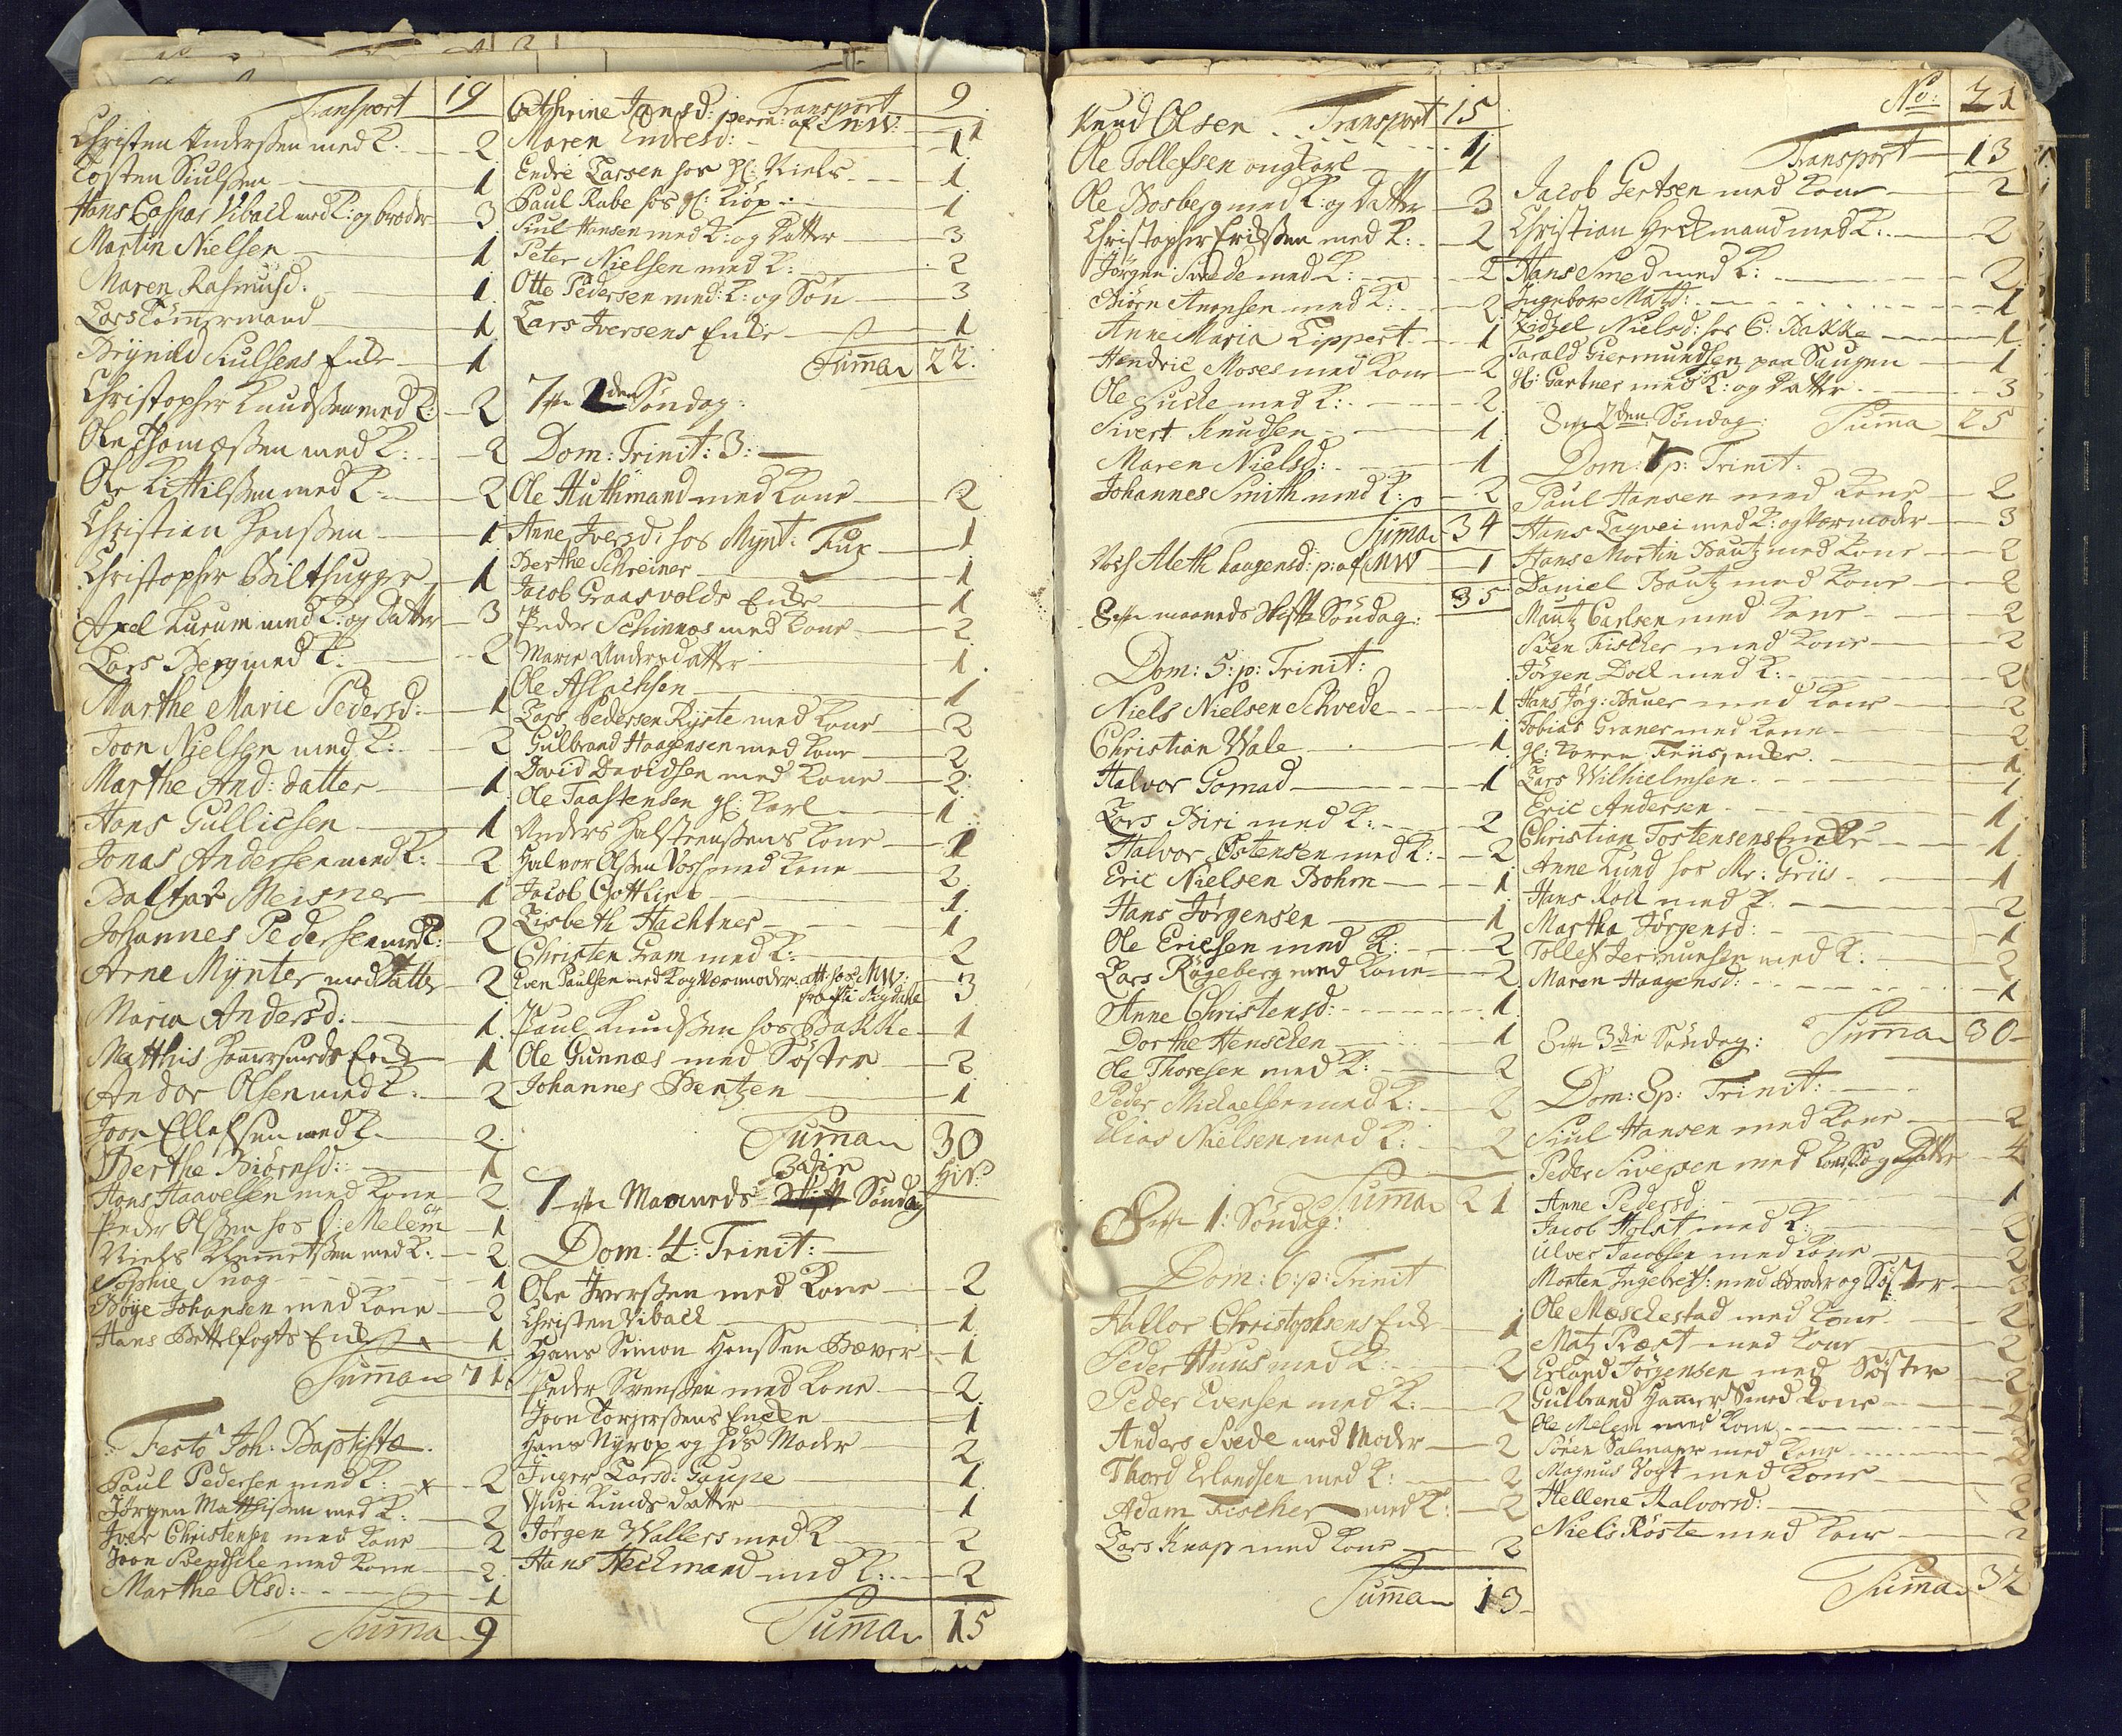 Transport 19
Christen Anderssen med K. 2
Tosten Siulssen 1
Hans Caspar Viback med K: og broder 3
Martin Nielsen 1
Maren Rasmusd: 1
Lars Tömmermand 1
Brynild Siulsens Enke 1
Christopher Knudssen med K: 2
Ole Thomæssen med K: 2
Ole Kittilssen med K: 2
Christian Hanssen 1
Christopher Bilthugger 1
Axel med K: og Datter 3
Lars Berg med K: 2
Marthe Marie Pedersd: 1
Joon Nielsen med K: 2
Marthe And: datter 1
Hans Gullicsen 1
Jonas Andersen med K: 2
Baltzar Meisner 1
Johannes Pedersen med K: 2
Arne Mynter med Datter 2
Maria Andersd: 1
Matthis Enke 1
Andor Olsen med K: 2
Joon Ellefsen med K 2
Berthe Biörnsd: 1
Hans Haavelsen med Kone 2
Peder Olssen hos J: Melum 1
Niels Klemmetssen med K: 2
Sophie Snog 1
Böÿe Johansen med Kone 2
Hans Bettelfogts Enke 1
Summa 71
Festo Joh: Baptistæ
Paul Pedersen med K: x 2
Jörgen Matthissen med K: 2
Iver Christensen med Kone 2
Joon med Kone 2
Marthe Olsd: 1
Summa 9
Transport 9
Cathrine Jonsd: perm: af MW: 1
Maren Endresd: 1
Endre Larsen hos Hr: Niels 1
Paul Rabe hos gl: Kiöp 1
Siul Hansen med K: og Datter 3
Peter Nielsen med K: 2
Otto Pedersen med K: og Sön 3
Lars Iversens Enke 1
Summa 22
7de 2den Söndag:
Dom: Trinit: 3:
Ole Huthmand med Kone 2
Anne Iversd: hos Mynt: Fux 1
Berthe Schreiner 1
Jacob Graasvolds Enke 1
Peder Schinnes med Kone 2
Marie Andersdatter 1
Ole Aslachsen 1
Lars Pedersen Ryste med Kone 2
Gulbrand Haagensen med Kone 2
David Davidsen med Kone 2
Ole Taastensen gl: Karl 1
Anders Halstenssens Kone 1
Halvor Olssen Voss med Kone 2
Jacob Gottlieb 1
Lisbeth Hachtner 1
Christen Gram med K: 2
Even Paulsen med K og Værmoder att: hos MW: fra 3
Paul Knudssen hos Bakke 1
Ole Gunnæs med Söster 2
Johannes Bentzen 1
Summa 30
7de Maaneds 3die Söndag
Dom: 4: Trinit:
Ole Iverssen med Kone 2
Christen Viback 1
Hans Simon Hanssen Bæver 1
Peder Svenssen med Kone 2
Joon Torgerssens Enke 1
Hans Nÿrop og Hds Moder 2
Inger Larsd: Gaupe 1
Guri Knuds datter 1
Jörgen Wallers med K 2
Hans Heckmand med K: 2
Summa 15
Transport 15
Knud Olsen 1
Ole Tollefsen ungkarl 1
Ole Bosberg med K: og Datter 3
Christopher Erikssen med K: 2
Jörgen Svede med K: 2
Biörn Amonsen med K: 2
Anne Maria Lippert 1
Hendric Moses med Kone 2
Ole med K: 2
Sivert Knudsen 1
Maren Nielsd: 1
Johannes Smith med K: 2
Summa 34
Aleth Haagensd: p: af MW 1
35
8de maaneds Skifte Söndag:
Dom: 5: p: Trinit:
Niels Nielsen Schvede 1
Christian Wale 1
Halvor Gomad 1
Lars Biri med K: 2
Halvor Östensen med K: 2
Eric Nielsen Bohrn 1
Hans Jörgensen 1
Ole Ericsen med K: 2
Lars Rögeberg med Kone 2
Anne Christensd: 1
Dorthe Henschen 1
Ole Thoresen med K: 2
Peder Michaelsen med K: 2
Elias Nielsen med K: 2
Summa 21
8de 1: Söndag:
Dom: 6: p: Trinit
Hallor Christophsens Enke 1
Peder Huus med K: 2
Peder Evensen med K: 2
Anders Svede med Moder 2
Thord Erlandsen med K: 2
Adam Fischer med K: 2
Lars Knap med Kone 2
Summa 13
No: 21
Transport 13
Jacob Gertsen med Kone 2
Christian Heckmand med K: 2
Hans Smed med K: 2
Ingebor Matsd: 1
Zidsel Nielsd: hos C: Bakke 1
Tarald Giermundsen paa Saugen 1
Hl: Gartner med K: og Datter 3
8de 2den Söndag: Summa 25
Dom: 7 p: Trinit:
Paul Hansen med Kone 2
Hans Lagvei med K: og Værmoder 3
Hans Mortin Bautz med Kone 2
Daniel Bautz med Kone 2
Mautz Carlsen med Kone 2
Sven Fischer med Kone 2
Jörgen Dock med K: 2
Hans Jörg: Bauer med Kone 2
Tobias Graner med Kone 2
gl: Karen Friis, enke 1
Lars Wilhielmsen 1
Eric Andersen 1
Christian Tostensens Enke 1
Anne Lund hos Mr: Griis 1
Hans Kolt med K: 2
Martha Jörgensd: 1
Tollef Jermunsen med K: 2
Maren Haagensd: 1
8de 3die Söndag: Summa 30
Dom: 8 p: Trinit:
Siul Hansen med Kone 2
Peder Siversen med Kone, S: og Datter 4
Anne Pedersd: 1
Jacob Holst med K: 2
Ulver Jacobsen med Kone 2
Morten Ingebretss: med Broder og Söster 3
Ole Moschestad med Kone 2
Matz Præst med Kone 2
Erland Jörgensen med Söster 2
Gulbrand Hammersmed Kone 2
Ole Melem med Kone 2
Sören Salmager med Kone 2
Magnus Vogt med Kone 2
Hellene Halvorsd: 2
Niels Röste med Kone 2
Summa 32